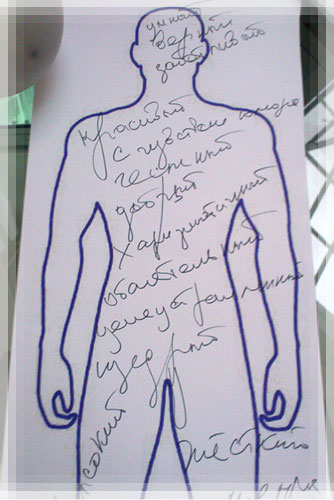 умный
верный
заботливый
красивый
с чувством юмора
честный
добрый
харизматичный
обаятельный
целеустремлённый
щедрый